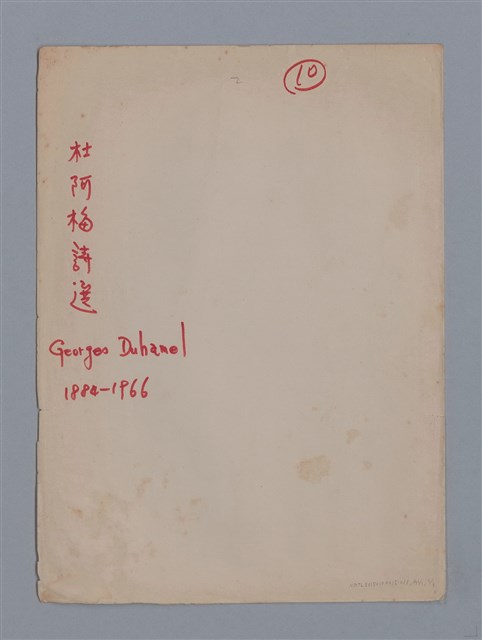 10
杜阿梅詩選
Georges Duhamel
1884-1966